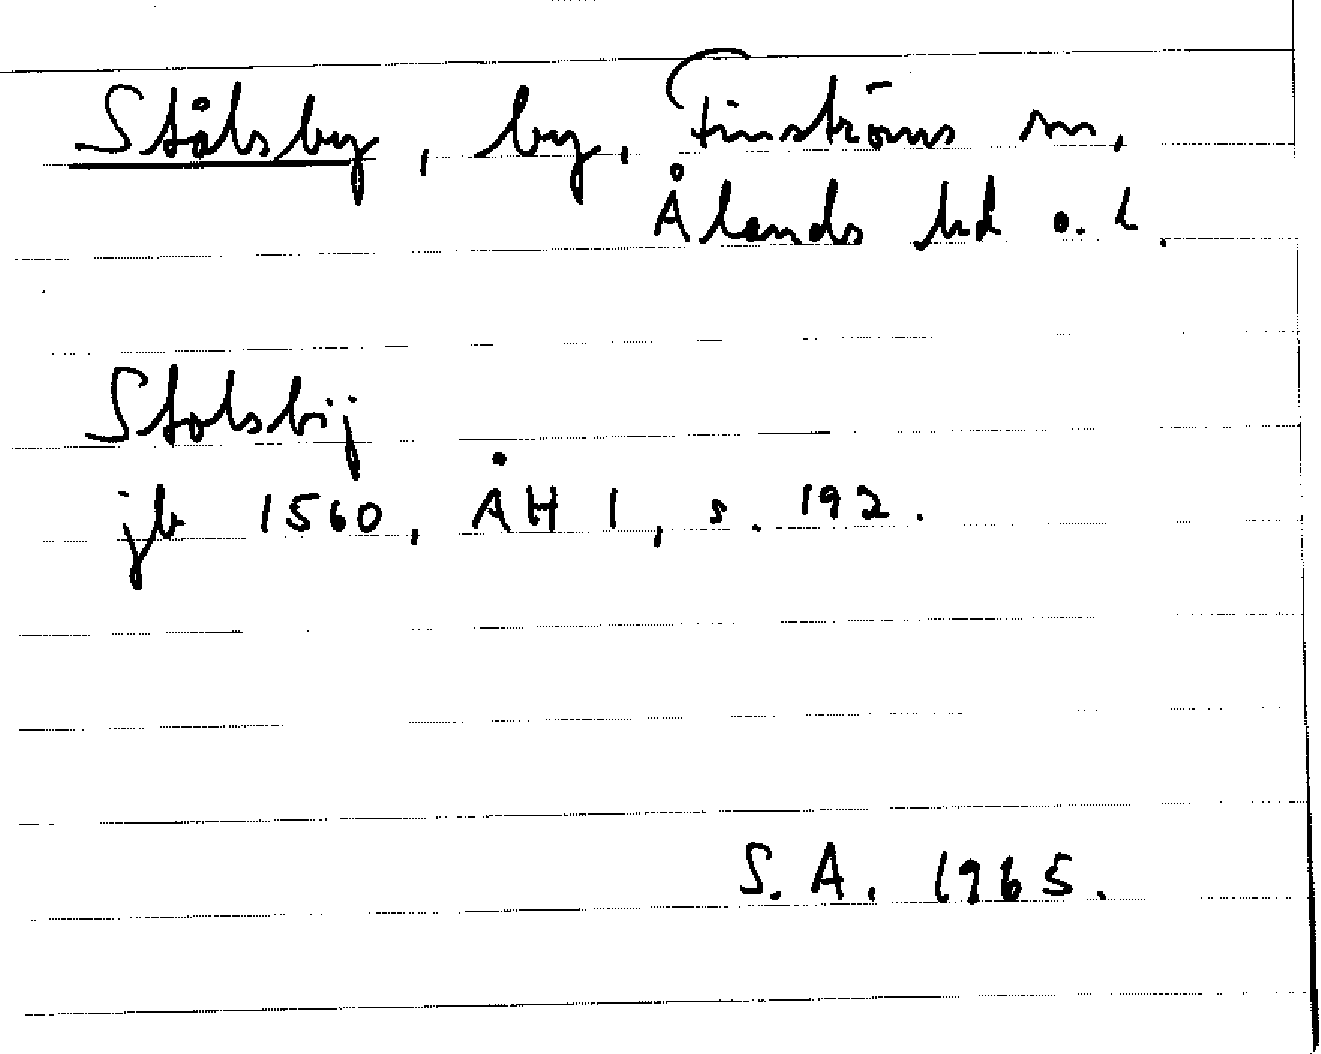 Stålsby, by, Finströms sn,
Ålands hd o. l.
Stolsbij
jb 1560, ÅH 1, s. 192.
S. A. 1965.